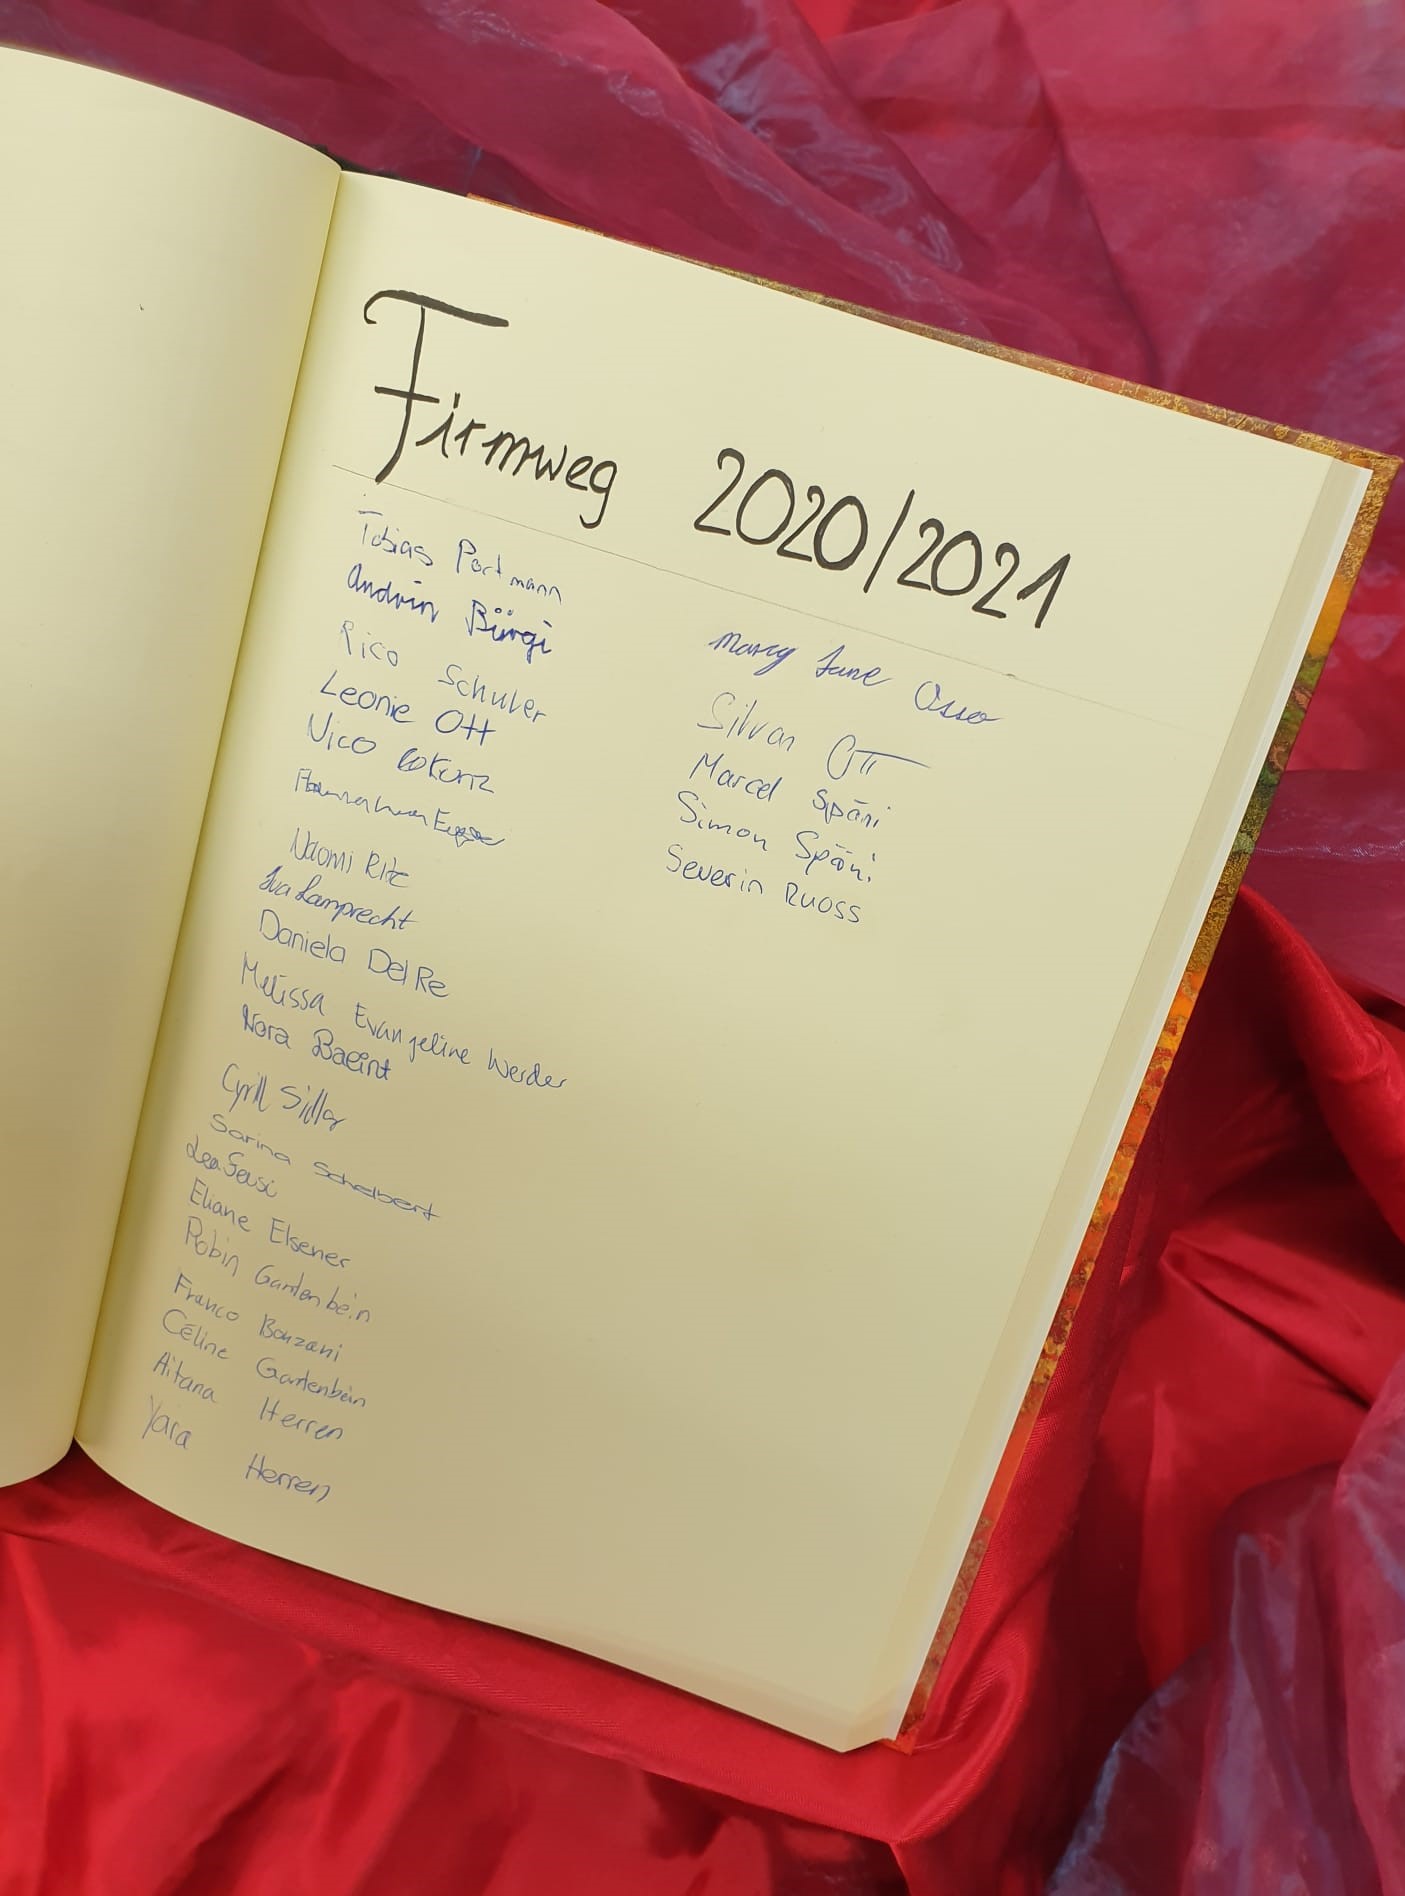 Firmweg 2020/2021
Tobias Portmann
Andrin Bürgi
Rico Schuler
Leonie Ott
Nico Kunz
Naomi Ritz
Lamprecht
Daniela Del Re
Melissa Evangeline Werder
Nora Baeint
Cyrill Sidler
Sarina Schelbert
Lea Seusi
Eliane Elsener
Robin Gantenbein
Franco Bonzani
Céline Gantenbein
Aitana Herren
Yara Herren
Mary Jane Osso
Silvan Ott
Marcel Späni
Simon Späni
Severin Ruoss